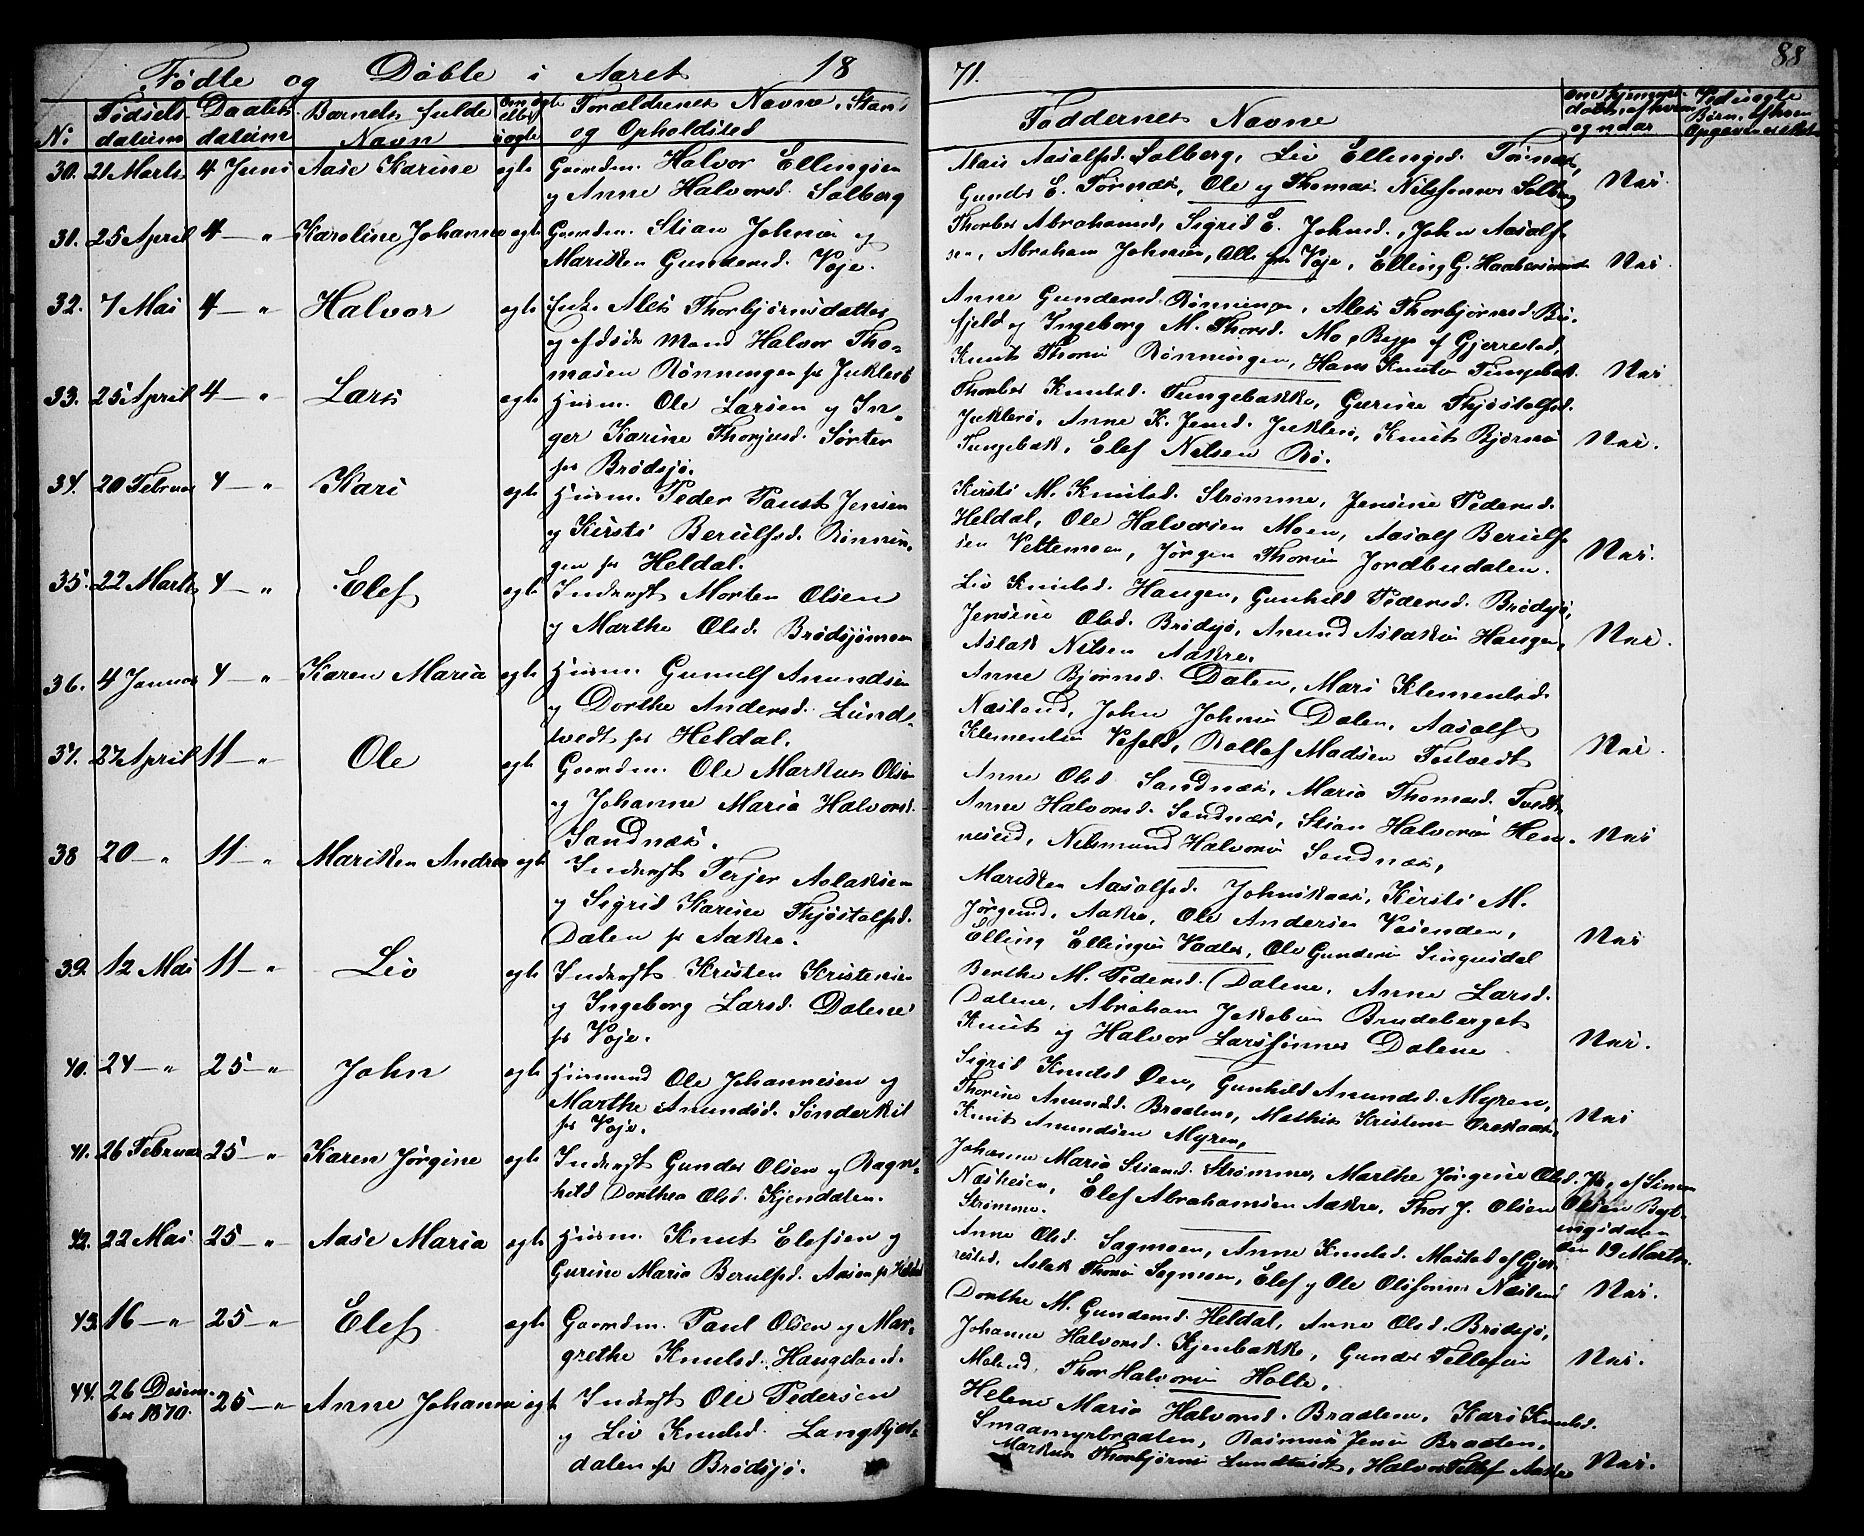 Fødte og Døbte i Aaret 18
71. 88
No Fødsels- datum Daabs- datum Barnets fulde Navn om ægte eller uægte Forældrenes Navne, Stand og Opholdsted
Faddernes Navne om hjemme- døbt, af hvem og naar Ved uægte Børn,
30. 21 Marts 4 Juni Aase Karine egte Gaardm. Halvor Ellingsen
y Anne Halvorsd. Solberg
Aasalfsd. Solberg, Liv Ellingsd. Tørnæs,
Gunder E. Tørnæs, Ole y Thomas Nilssønner Solberg Nei.
31. 25 April 4 — " Karoline Johanne egte Gaardm. Stian Johnsen y
Mariken Gundersd. Voje.
Thorbor Abrahamsd, Sigrid E. Johnsd., John Aasolf-
sen, Abraham Johnsen, Alle fra Voje, Elling G. Haabesmoet Nei
32. 7 Mai 4 — " Halvor egte Enke Alet Thorbjørnsdatter
y afdøde Mand Halvor Tho-
masen Rønningen fr Juklerø
Anne Gundersd. Rønningen, Alet Thorbjørnsd.
fjeld y Ingeborg M. Thorsd. Mo, Begge af Gjerrestad,
Knut Thorsen Rønningen, Hans Knutsen Tungebak. Nei
33. 25 April 4 — " Lars egte Husm. Ole Larsen y In-
ger Karine Thorjusd. Sørter
fr Brødsjø.
Thorbor Knutsd. Tungebakke, Gurine Thjøstolfsd.
Juklerø, Anne K. Jensd. Juklerø, Knut Bjørnsen
Tungebak, Elef Nilsen Rø. Nei.
34. 20 Februar 4 — " Kari egte Husm. Peder Faust Jensen
y Kirsti Berulfsd. Rønnin-
gen fr Heldal.
Kirsti M. Knutsd. Strømme, Jensine Pedersd.
Heldal, Ole Halvorsen Moen, Aasolf Berulf-
sen Vettemoen, Jørgen Thorsen Jordbudalen. Nei.
35. 22 Marts 4 — " Elef egte Inderst Morten Olsen
y Marthe Olsd. Brødsjømoen
Liv Knutsd. Haugen, Gunhild Pedersd. Brødsjø,
Jensine Olsd. Brødsjø, Anund Aslaksen Haugen,
Aslak Nilsen Aakre. Nei.
36. 4 Januar 4 — " Karen Maria egte Husm. Gunulf Anundsen
y Dorthe Andersd. Lunds-
tvedt fr Heldal.
Anne Bjørnsd. Dalen, Mari Klementsd.
Næsland, John Johnsen Dalen, Aasolf
Klementsen Vefald, Rollef Madsen Tostvedt Nei.
37. 27 April 11 — " Ole egte Gaardm. Ole Markus Olsen
y Johanne Maria Halvorsd.
Sandnæs.
Anne Olsd. Sandnæs, Maria Thomasd.
Anne Halvorsd. Sandnæs, Stian Halvorsen Hen-
neseid, Nilsmund Halvorsen Sandnæs, Nei
38 20 — " 11 — " Mariken Andrea egte Inderst Terjer Aslaksen
y Sigrid Karine Thjøstolfsd.
Dalen fr Aakre.
Mariken Aasolfsd. Johnskaas, Kirsti M.
Jørgensd. Aakre, Ole Andersen Vøienden,
Elling Ellingsen Vadler, Ole Gundersen Singusdal Nei
39. 12 Mai 11 — " Liv egte Inderst Kristen Kristensen
y Ingeborg Larsd. Dalene
fr Voje.
Berthe M. Pedersd. Dalene, Anne Larsd.
Dalene, Abraham Jakobsen Brudeberget
Knut y Halvor Larssønner Dalene Nei.
40. 24 — " 25 — " John egte Husmand Ole Johannesen y
Marthe Anundsd. Sønderkil
fr Voje.
Sigrid Knudsd Øen, Gunhild Anundsd. Myren,
Thorine Anundsd. Braatene, Mathis Kristensen
Knut Anundsen Myren, Nei
41. 26 Februar 25 — " Karen Jørgine egte Inderst Gunder Olsen y Ragn-
hild Dorthea Olsd. Kjendalen.
Johanne Maria Stiansd. Strømme, Marthe Jørgine Olsd.
Næsheien, Elef Abrahamsen Aakre, Thor J. Olsen
Strømme. Ja, af Simon
Olsen Byt-
ingsdalen
den 19 Marts.
42. 22 Mai 25 — " Aase Maria egte Husm. Knut Elefsen y
Gurine Maria Berulfsd. Aasen fr Heldal
Anne Olsd. Sagmoen, Anne Knutsd. Mostad af Gjer-
restad, Aslak Thorsen Sagmoen, Elef y Ole Olssønner Næsland Nei.
43. 16 — " 25 — " Elef egte Gaardm. Paul Olsen y Mar-
grethe Knutsd. Haugeland.
Dorthe M. Gundersd. Heldal, Anne Olsd. Brødsjø,
Johanne Halvorsd. Kjenbakke, Gunder Tellefsen
Moland, Thor Halvorsen Holte. Nei.
44. 26 Desem-
ber 1870. 25 — " Anne Johanne egte Inderst Ole Pedersen
y Liv Knutsd. Langkjøt-
dalen fr Brødsjø.
Helene Maria Halvorsd. Braaten, Kari Knutsd.
Smaamyrbraaten, Rasmus Jensen Braaten,
Markus Thorbjørnsen Lundtvedt, Halvor Tellef Aakre Nei.